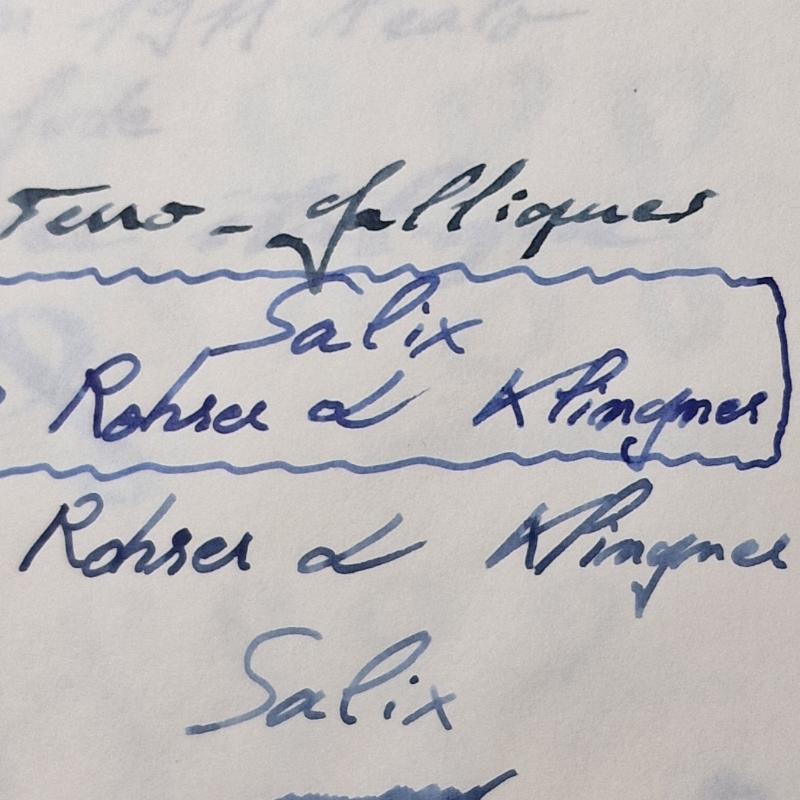 Ferro-galliques
Salix
Rohrer & Klingner
Rohrer & Klingner
Salix